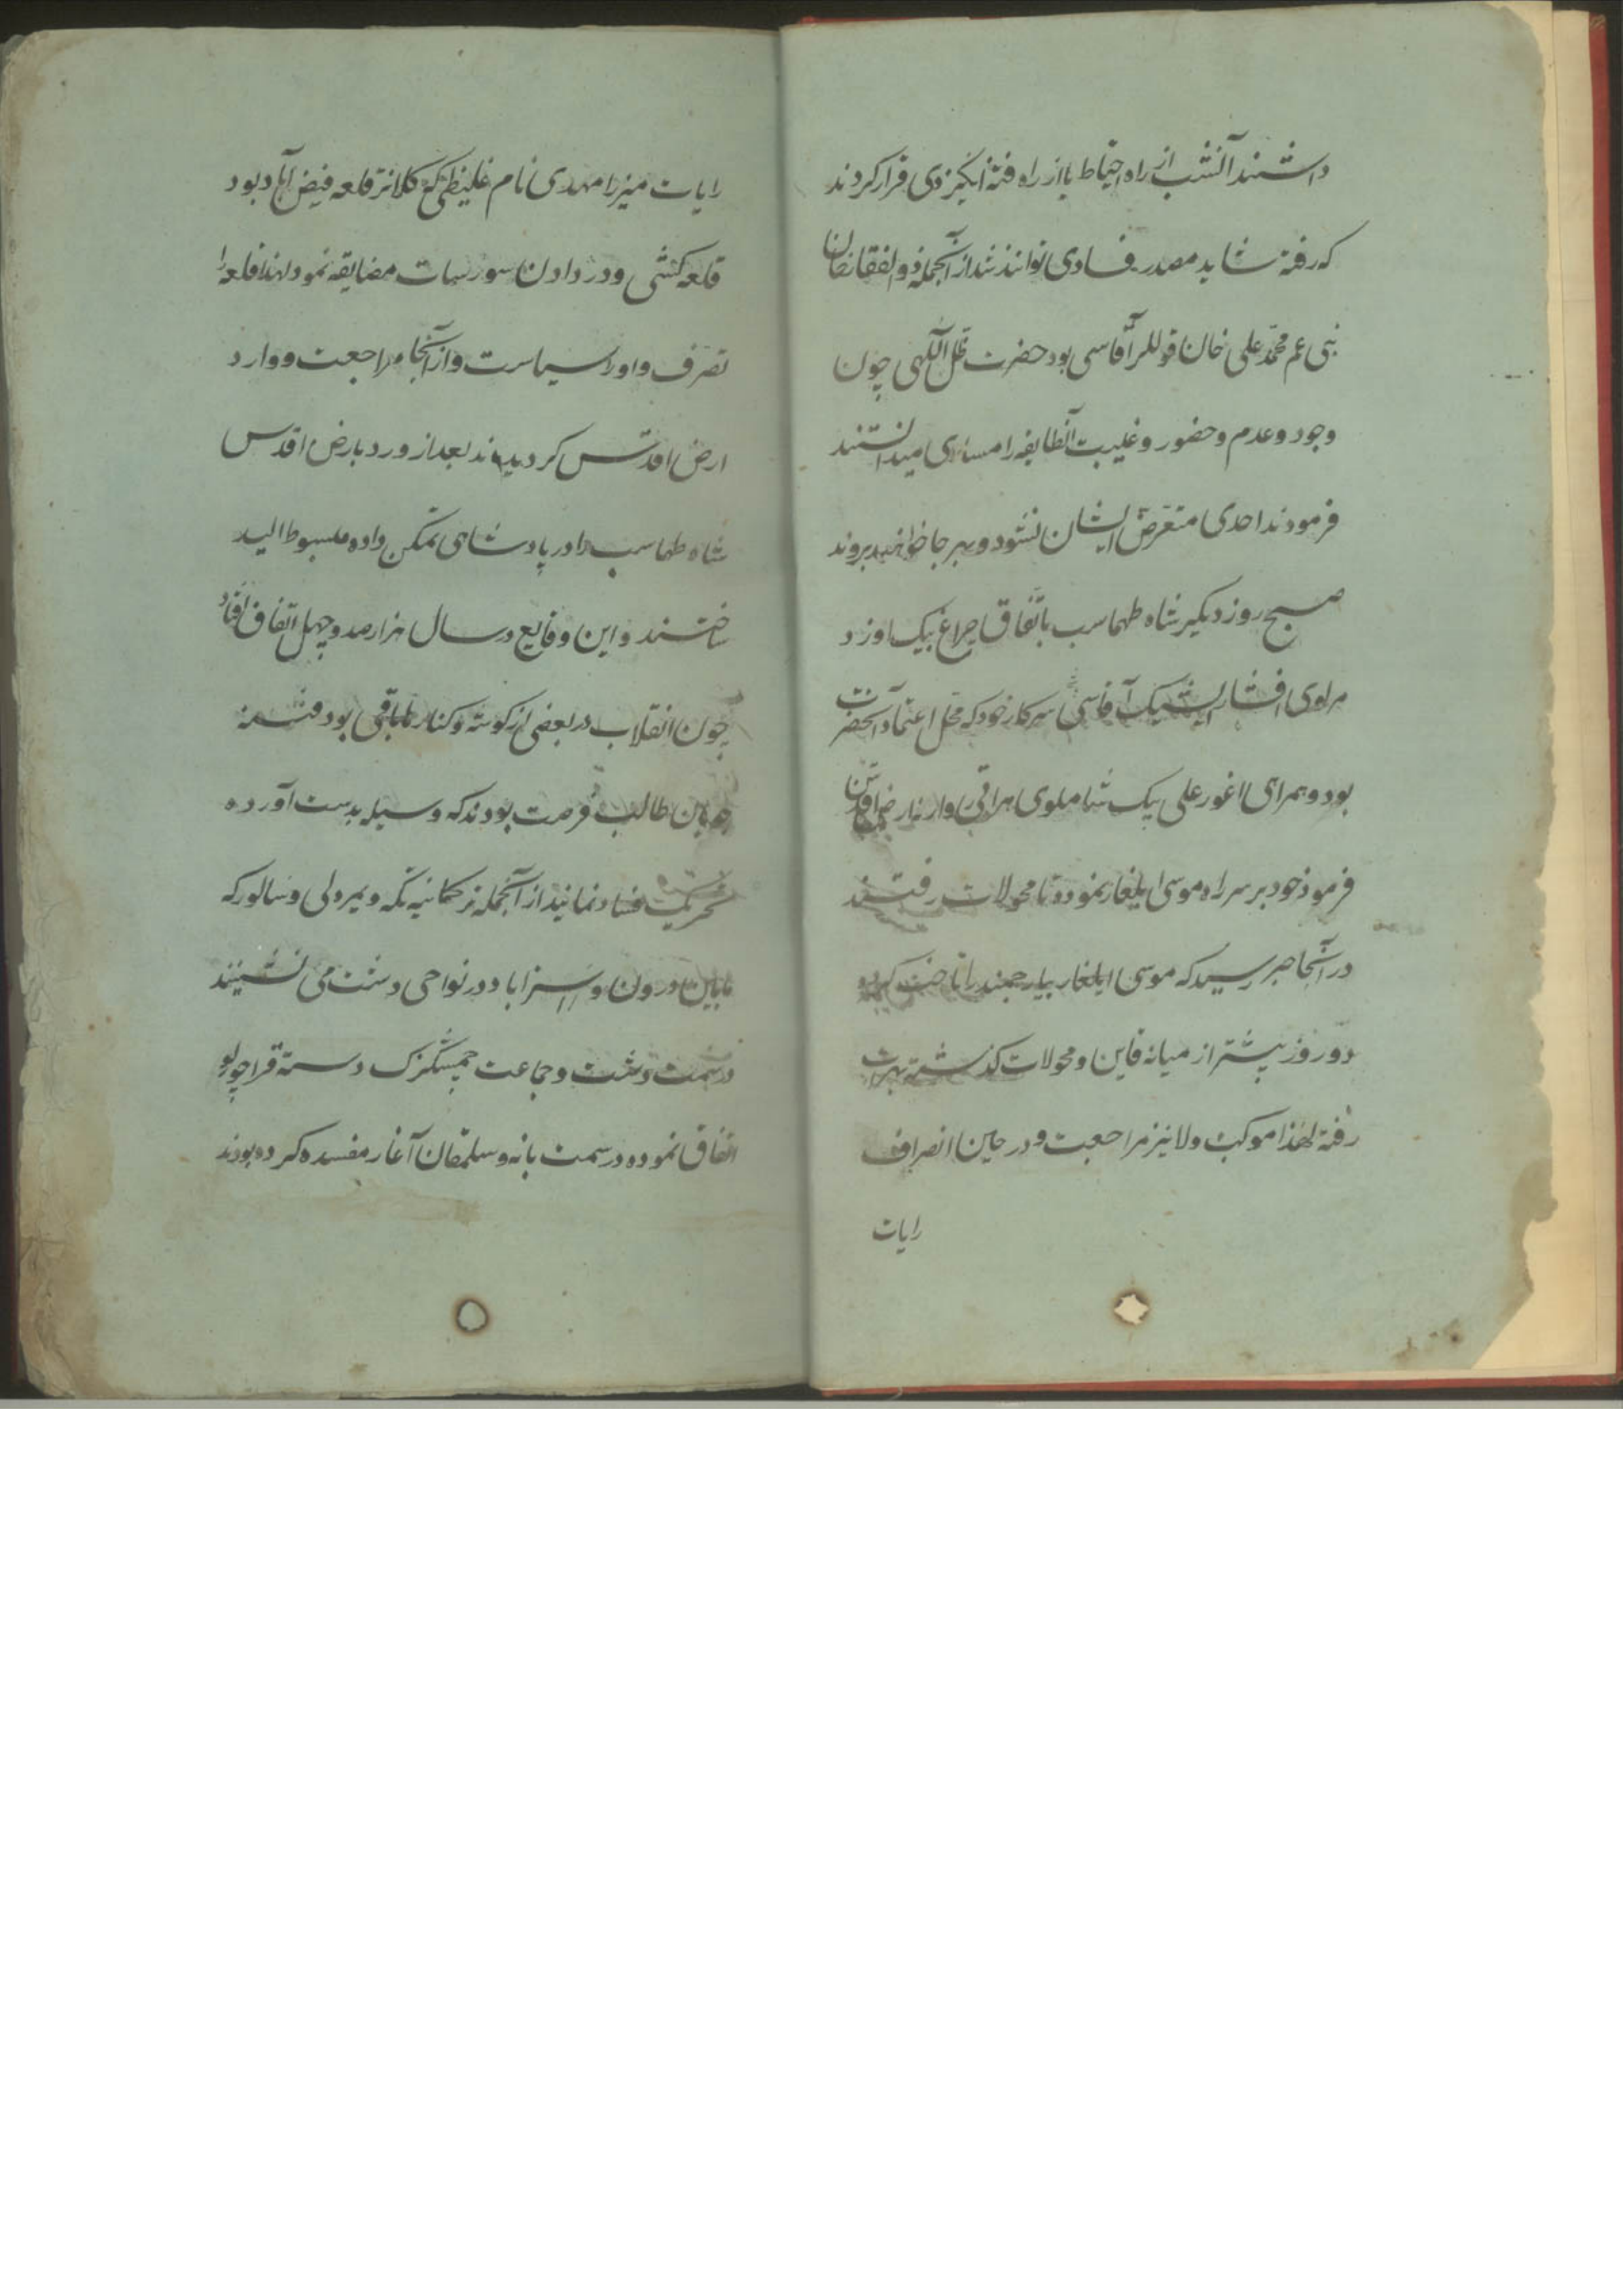 داشتند آنشب از راه احتیاط یا از راه فتنه انگیزی قرار کردند
که رفته شاید مصدر فسادی توانند شد از آنجمله ذوالفقارخان
بنی عم محمّد علی خان قوللر آقاسی بود حضرت ظلّ اللّهی چون
وجود و عدم و حضور و غیبت آنطایفه را مساوی میدانستند
فرمودند احدی متعرّض ایشان نشود و بهر جا خواهند بروند
صبح روز دیگر شاه طهماسب باتّفاق چراغ بیک اوزد
مرلوی افشار ایشیک آقاسی سرکار خود که محلّ اعتماد آنحضرت
بود و همراهی اغورعلی بیک شاملوی هراتی روانه ارض اقدس
فرمود خود بر سر راه موسی ایلغار نموده تا محولات رفتند
در آنجا خبر رسید که موسی ایلغار بیارجمند را تاخت کرده
دو روز پیشتر از میانه قاین و محولات گذشته بهرات
رفته لهذا موکب والا نیز مراجعت و در حین انصراف
رایات
رایات میرزا مهدی نام غلیظی که کلانتر قلعه فیض آباد بود
قلعه کشی و در دادن سورسات مضایقه نمود لهذا قلعه را
تصرّف و او را سیاست و از آنجا مراجعت و وارد
ارض اقدس گردیدند بعد از ورود بارض اقدس
شاه طهماسب را در پادشاهی تمکّن داده مبسوط الید
ساختند و این وقایع در سال هزار صد و چهل اتّفاق افتاد
چون انقلاب در بعضی از گوشه و کنار باقی بود فتنه
جویان طالب فرصت بودند که وسیله بدست آورده
تحریک فساد نمایند از آنجمله ترکمانیه تکّه و یمرولی و سالور که
مابین درون و استراباد در نواحی دشت می نشینند
در سمت دشت و جماعت چمشگزک دسته قراچورلو
اتفاق نموده در سمت بانه و سلمقان آغاز مفسده کرده بودند